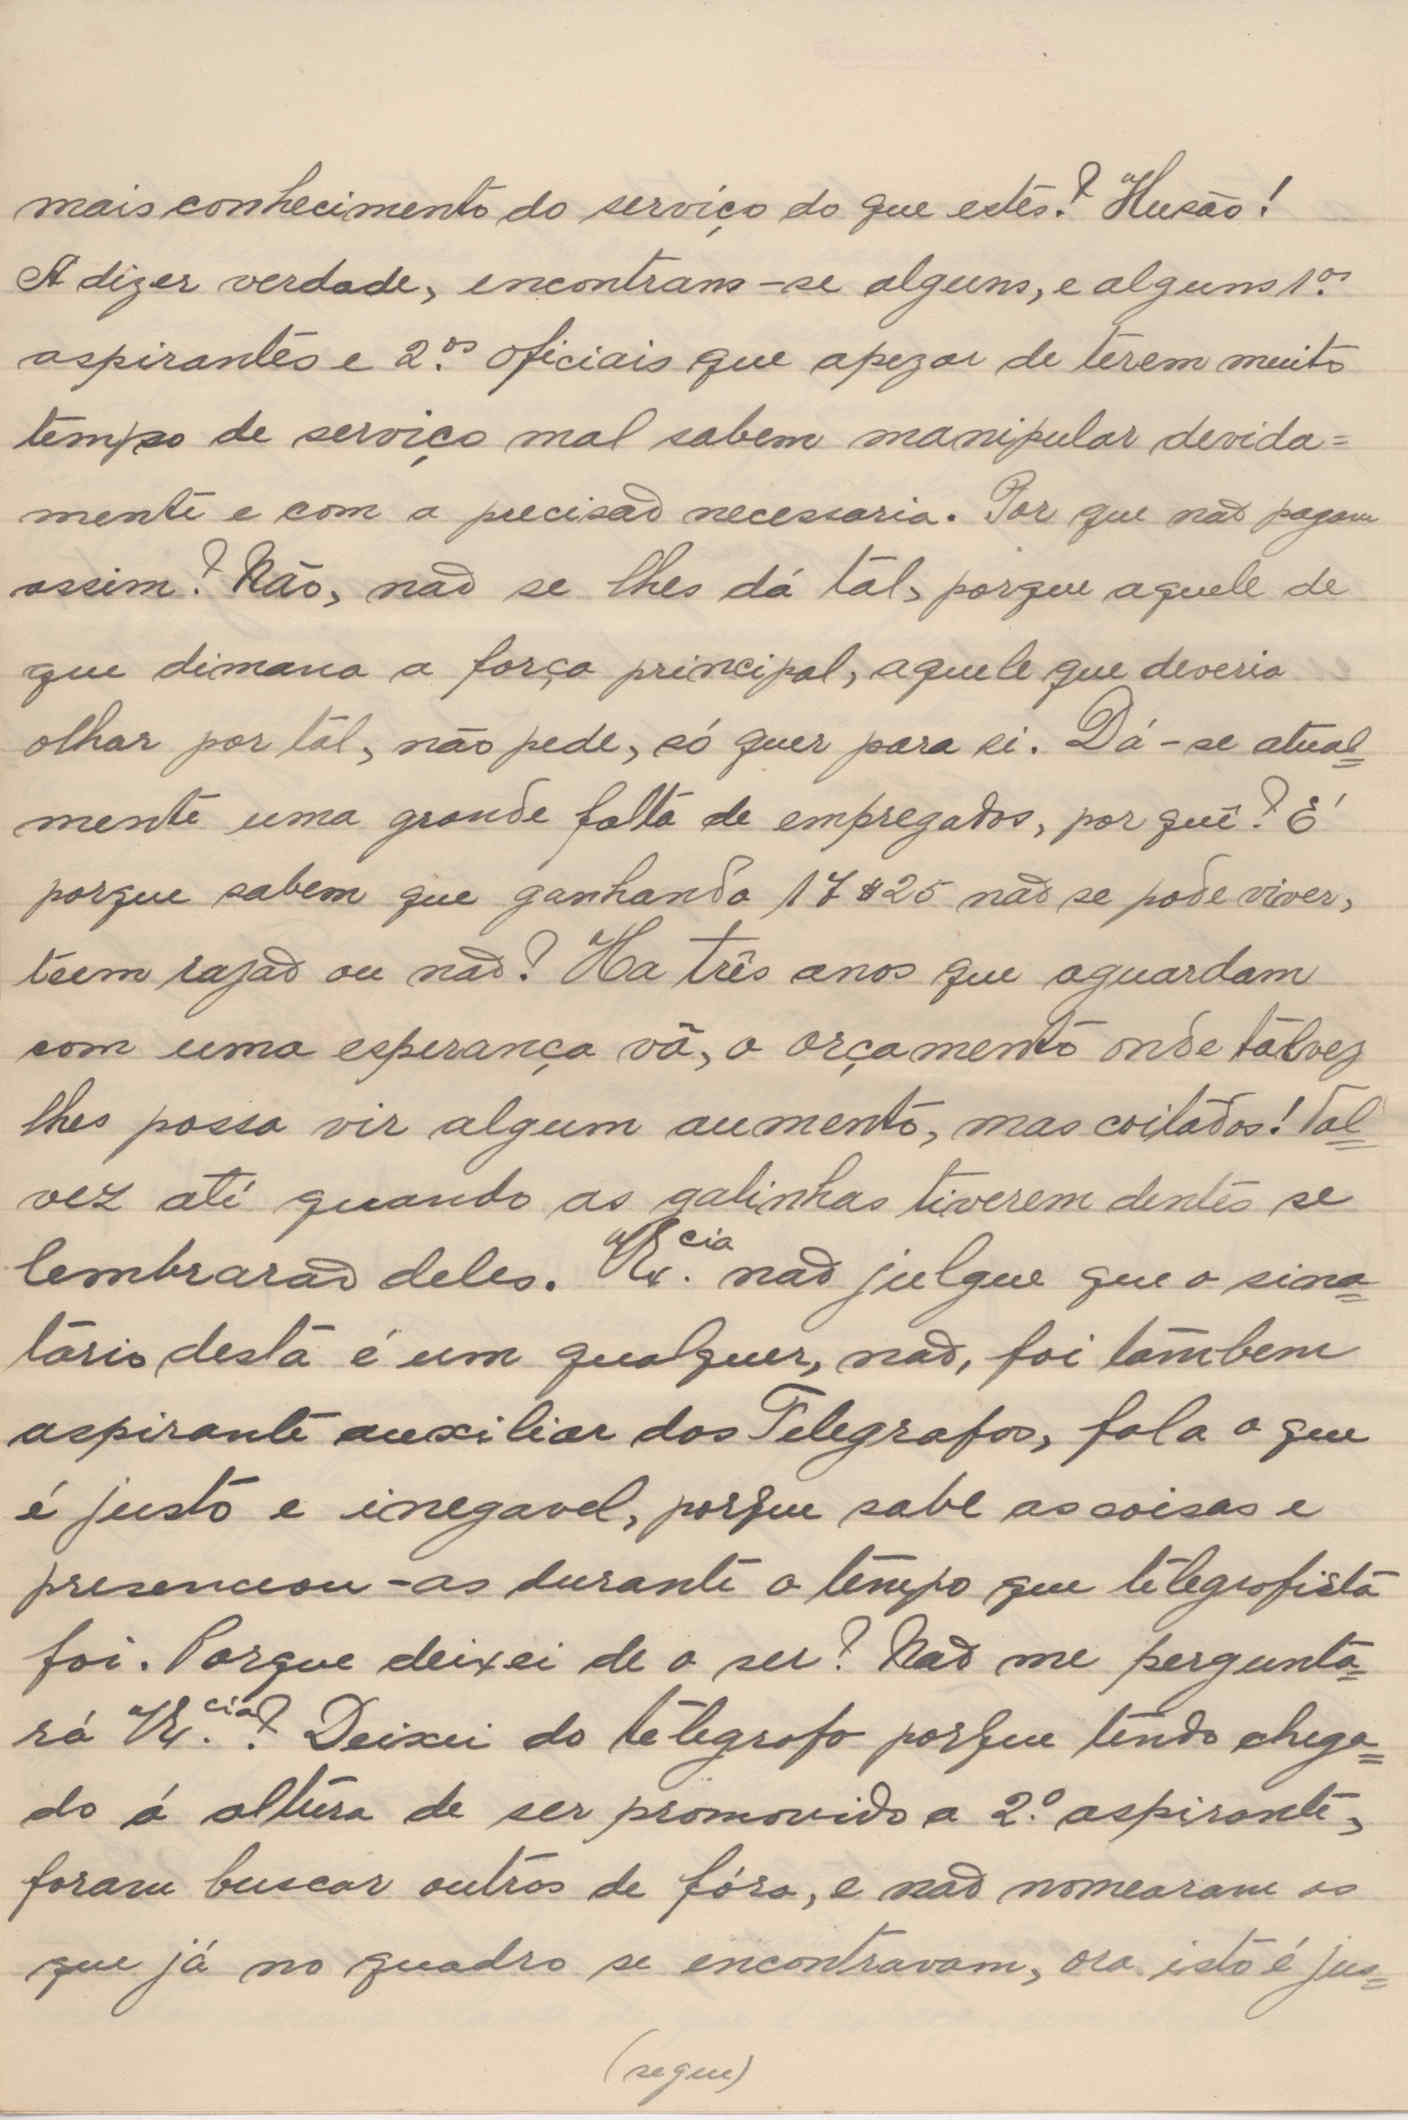 mais conhecimento do serviço do que estes? Ilusão!
A dizer verdade, encontram-se alguns, e alguns 1.os
aspirantes e 2.os oficiais que apezar de terem muito
tempo de serviço mal sabem manipular devida=
mente e com a precisaõ necessaria. Por que naõ pagam
assim? Não, naõ se lhes dá tal, porque aquele de
que dimana a força principal, aquele que deveria
olhar por tal, não pede, só quer para si. Dá-se atual=
mente uma grande falta de empregados, por quê? É
porque sabem que ganhando 17$25 naõ se pode viver,
teem razaõ ou naõ? Ha três anos que aguardam
com uma esperança vã, o orçamento onde talvez
lhes possa vir algum aumento, mas coitados! Tal=
vez até quando as galinhas tiverem dentes se
lembraraõ deles. V.Ex.cia naõ julgue que o sina=
tário desta é um qualquer, naõ, foi tambem
aspirante auxiliar dos Telegrafos, fala o que
é justo e inegavel, porque sabe as coisas e
presenceou-as durante o tempo que telegrafista
foi. Porque deixei de o ser? Naõ me pergunta=
rá V.Ex.cia? Deixei do telegrafo porque tendo chega=
do á altura de ser promovido a 2.º aspirante,
foram buscar outros de fóra, e naõ nomearam os
que já no quadro se encontravam, ora isto é jus=
(segue)